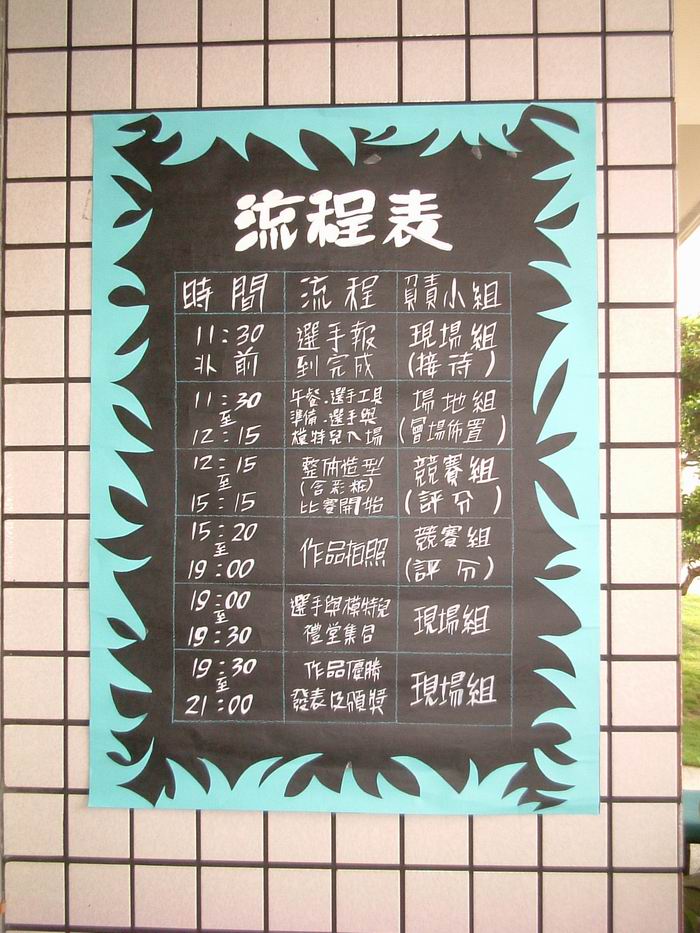 流程表
時間 流程 負責小組
11:30 選手報 現場組
以前 到完成 (接待)
11:30 午餐.選手工具 場地組
至 準備.選手與
12:15 模特兒入場 (會場佈置)
12:15 整体造型 競賽組
至 (含彩粧)
15:15 比賽開始 (評分)
15:20 作品拍照 競賽組
至
19:00 (評分)
19:00 選手與模特兒 現場組
至
19:30 禮堂集合
19:30 作品優勝 現場組
至
21:00 發表及頒獎